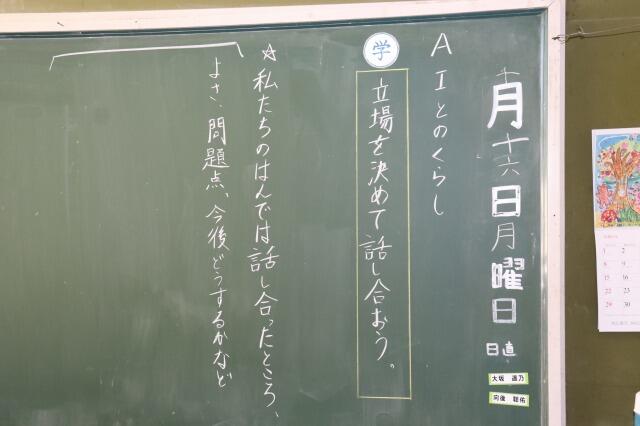 十月十六日月曜日
日直
大坂
向後 聡佑
AIとのくらし
学
立場を決めて話し合おう。
☆私たちのはんでは話し合ったところ、
よさ、問題点、今後どうするかなど
1 2
8 9
15 16
22 23
29 30